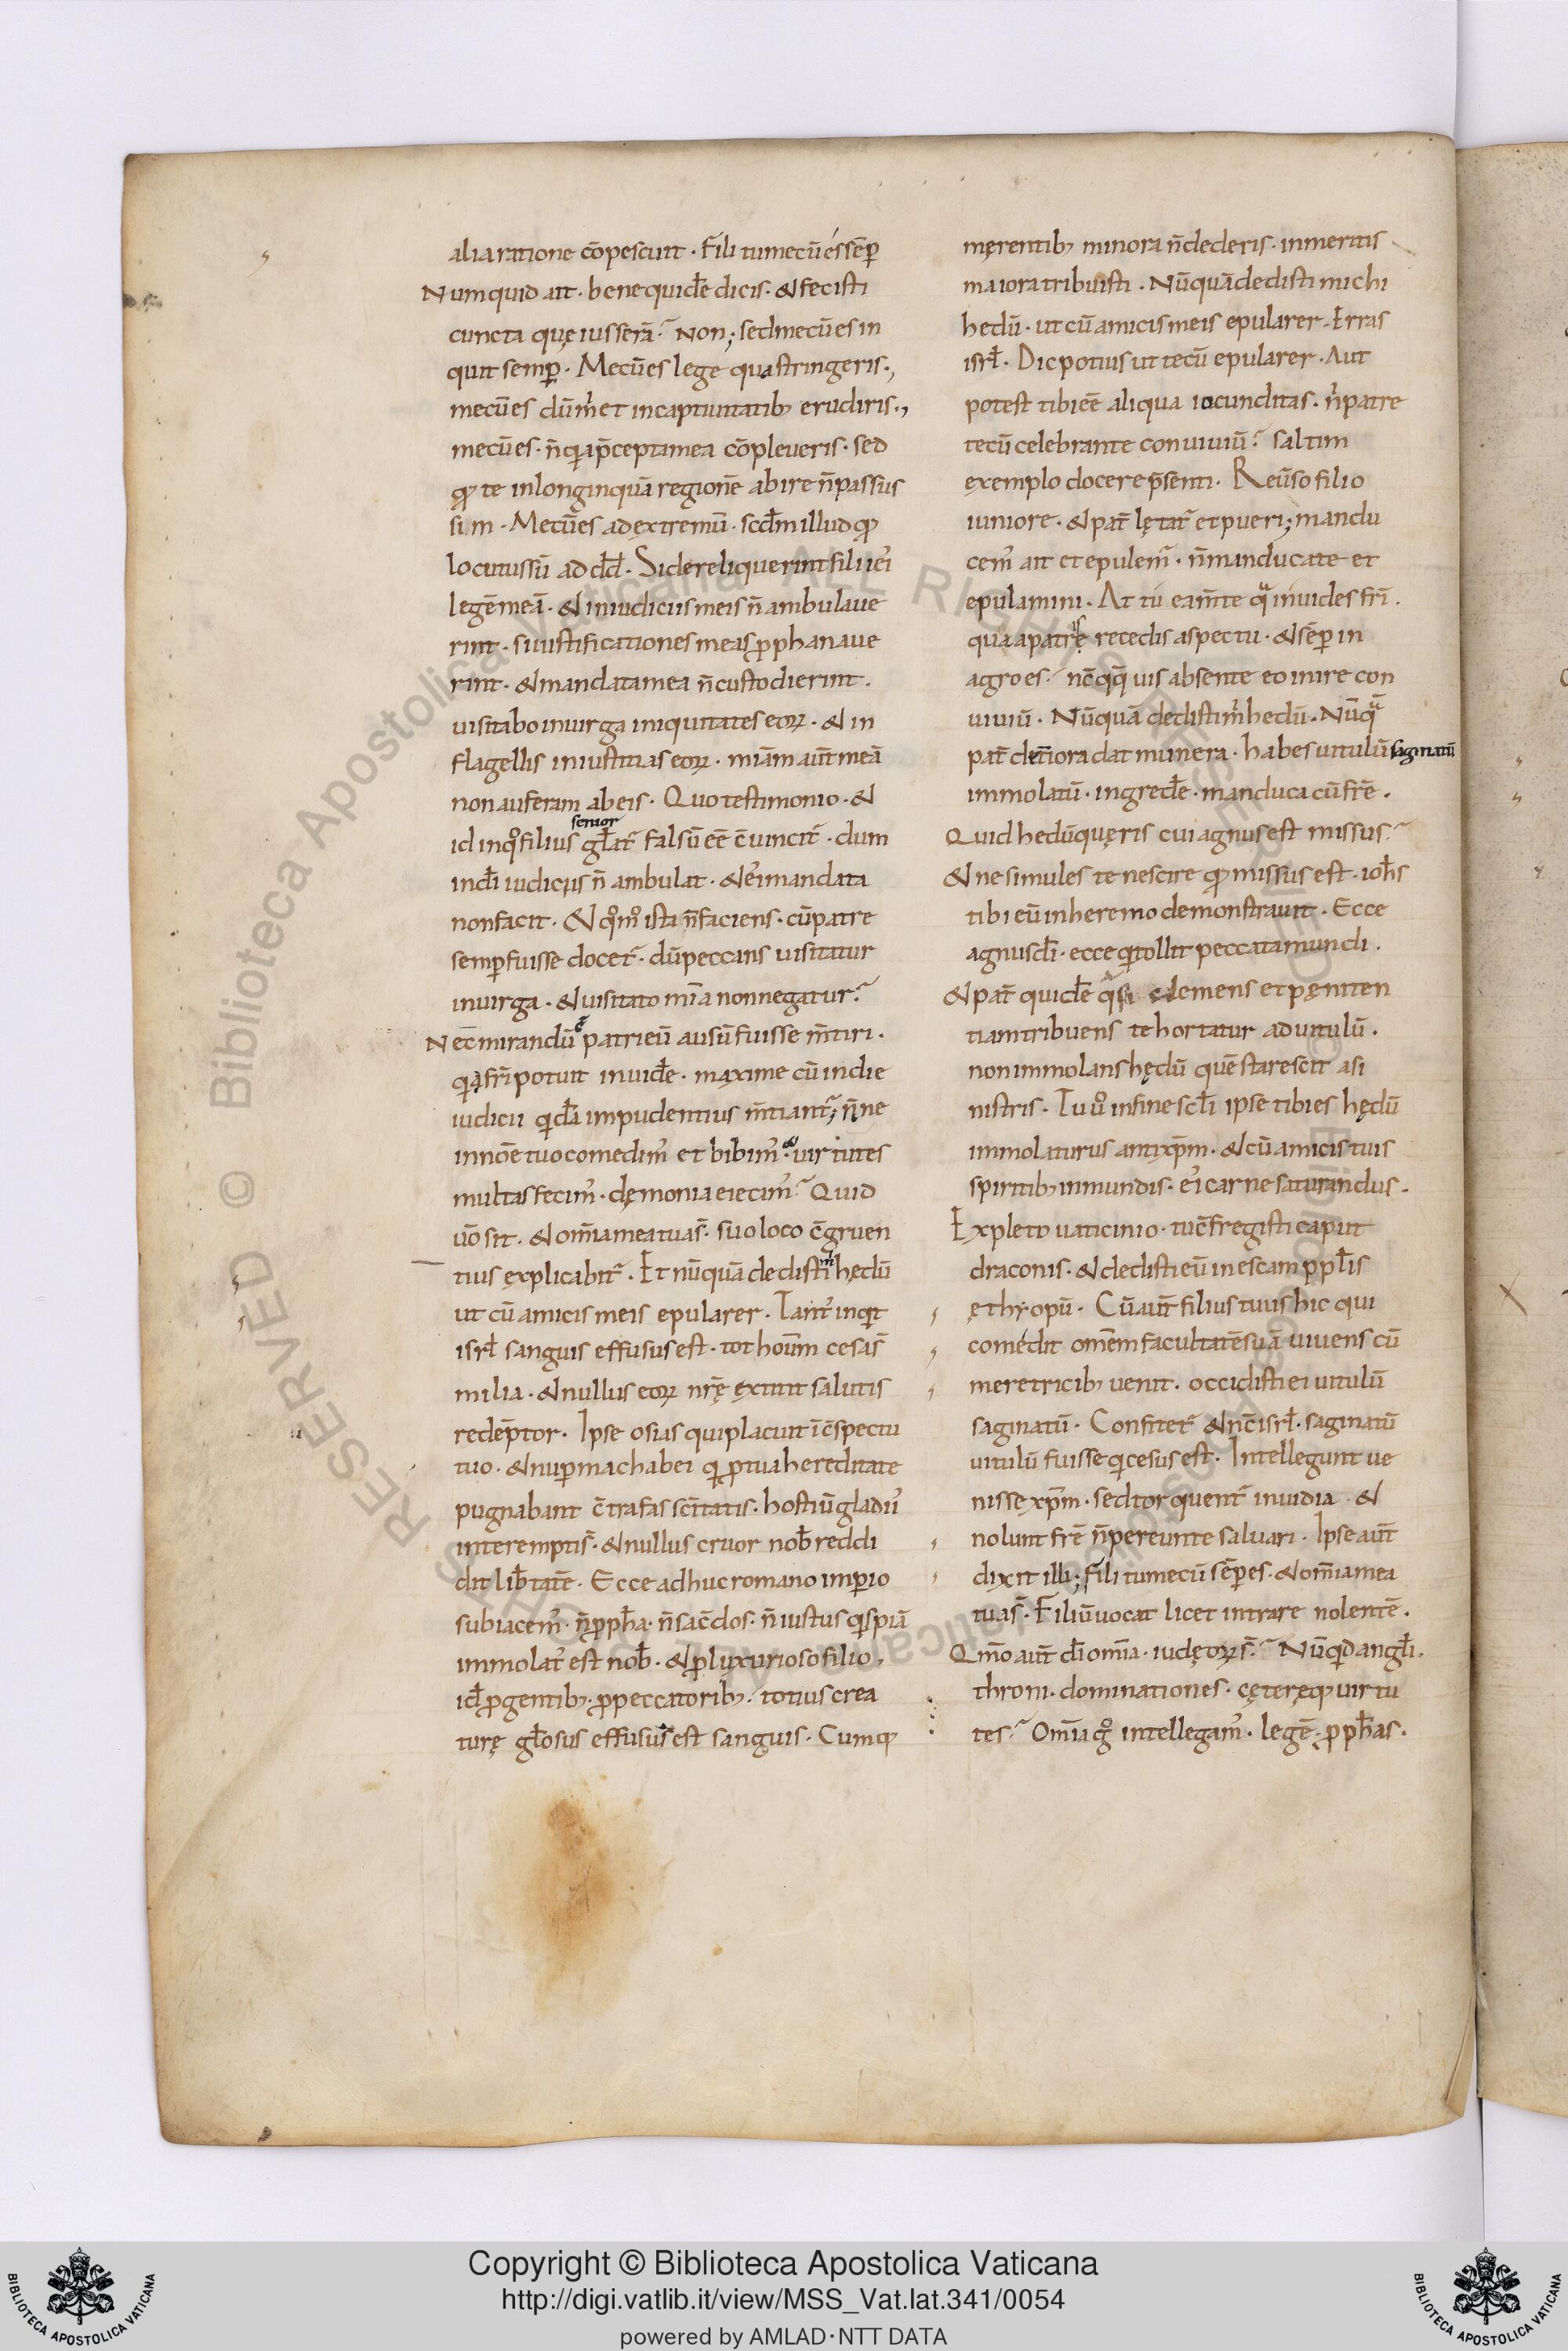 alia ratione cōpescuit · Fili tu mecū és sēp
Numquid ait · bene quidē dicis · & fecisti
cuncta quę iusserā? Non; sed mecū es in
quit semꝑ · Mecū es lege qua stringeris·,
mecū es dū m̓ et in captiuitatib; erudiris·,
mecū es · n̄ quia p̄cepta mea cōpleueris · sed
qđ te in longinquā regionē abire n̄ passus
sim · Mecū es ad extremū · scđm illud qđ
locutus sū ad dđ · Si dereliquerint filii ei̓
legē meā · & in iudiciis meis n̄ ambulaue
rint · si iustificationes meas ꝓphanaue
rint · & mandata mea n̄ custodierint ·
uisitabo in uirga iniquitates eoꝝ · & in
flagellis iniustitias eoꝝ · miām aut̄ meā
non auferam ab eis · Quo testimonio · &
id in qͦ filius senior gl̄at͛ falsū eē c̄uincit͛ · dum
in dī iudiciis n̄ ambulat · & ei̓ mandata
non facit · & qͦmͦ ista n̄ faciens · cū patre
semꝑ fuisse docet͛ · dū peccans uisitatur
in uirga · & uisitato mīa non negatur?
Nec mirandū ē patri eū ausū fuisse m̄tiri ·
quia fr̄i potuit inuidē · maxime cū in die
iudicii quidā impudentius m̄tiant͛; nn̄e
in nōe tuo comedim̓ et bibim̓ · & uirtutes
multas fecim̓ · dęmonia eiecim̓? Quid
u̅o sit · & om̄ia mea tua s̄ · suo loco c̄gruen
tius explicabit͛ · Et nūquā dedisti m̓ hędū
ut cū amicis meis epularer · Tant̓ inquit
isrł sanguis effusus est · tot houm̄ cesa s̄
milia · & nullus eoꝝ nrę extitit salutis
redēptor · Ipse osias qui placuit ī c̄spectu
tuo · & nuꝑ machabei qui ꝓ tua hereditate
pugnabant c̄tra fas sc̄itatis · hostiū gladiis
interempti s̄ · & nullus cruor nob̄ reddi
dit lib̄tatē · Ecce adhuc romano imꝑio
subiacem̓ · n̄ ꝓpħa · n̄ sac̄dos · n̄ iustus quispiā
immolat̓ est nob̄ · & ꝓ luxurioso filio ·
id̄ ꝓ gentib; · ꝓ peccatorib; · totius crea
turę gl̄osus effusus est sanguis · Cumq;
męrentib; minora n̄ dederis · inmeritis
maiora tribuisti · Nūquā dedisti michi
hedū · ut cū amicis meis epularer · Erras
isrł · Dic potius ut tecū epularer · Aut
potest tibi eē aliqua iocunditas · n̓ patre
tecū celebrante conuiuiū? saltim
exemplo docere p̄senti · Reūso filio
iuniore · & pat̄ lętat͛ et pueri; mandu
cem̓ ait et epulem͛ · n̄ manducate et
epulamini · At tú ea m̄te qͣ inuides fr̄i ·
qua a patris recedis aspectu · & sēꝑ in
agro es? nc̄ qq̄ uis absente eo inire con
uiuiū · Nūquā dedisti m̓ hedū · Nūqͣ
pat̄ det̄iora dat munera · habes uitulū saginatū
immolatū · ingredē · manduca cū fr̄e ·
Quid hedū quęris cui agnus est missus?
& ne simules te nescire qđ missus est · iohs
tibi eū in heremo demonstrauit · Ecce
agnus dī · ecce qui tollit peccata mundi ·
& pat̄ quidē qͣsi clemens et pęniten
tiam tribuens te hortatur ad uitulū ·
non immolans hędū quē stare scit a si
nistris · Tu u̅o in fine scłi ipse tibi es hędū
immolaturus antixp̄m · & cū amicis tuis
spiritib; inmundis · ei̓ carne saturandus ·
Expleto uaticinio · tu c̄fregisti caput
draconis · & dedisti eū in escam ppłis
ęthyopū · Cū aut̄ filius tuus hic qui
comédit omēm facultatē suā uiuens cū
meretricib; uenit · occidisti ei uitulū
saginatū · Confitet͛ & nc̄ isrł · saginatū
uitulū fuisse qui cesus est · Intellegunt ue
nisse xp̄m · sed torquent͛ inuidia · &
nolunt fr̄e n̄ pereunte saluari · Ipse aut̄
dixit illi; fili tu mecū sēꝑ es · & om̄ia mea
tua s̄ · Filiū uocat licet intrare nolentē ·
Qm̄o aut̄ dī om̄ia · iudęoꝝ s̄? Nūquid angłi ·
throni · dominationes · cęteręq; uirtu
tes? Om̄ia gͦ intellegam̓ · legē · ꝓpħas ·
Copyright © Biblioteca Apostolica Vaticana
http://digi.vatlib.it/view/MSS_Vat.lat.341/0054
powered by AMLAD·NTT DATA
BIBLIOTECA APOSTOLICA VATICANA
BIBLIOTECA APOSTOLICA VATICANA